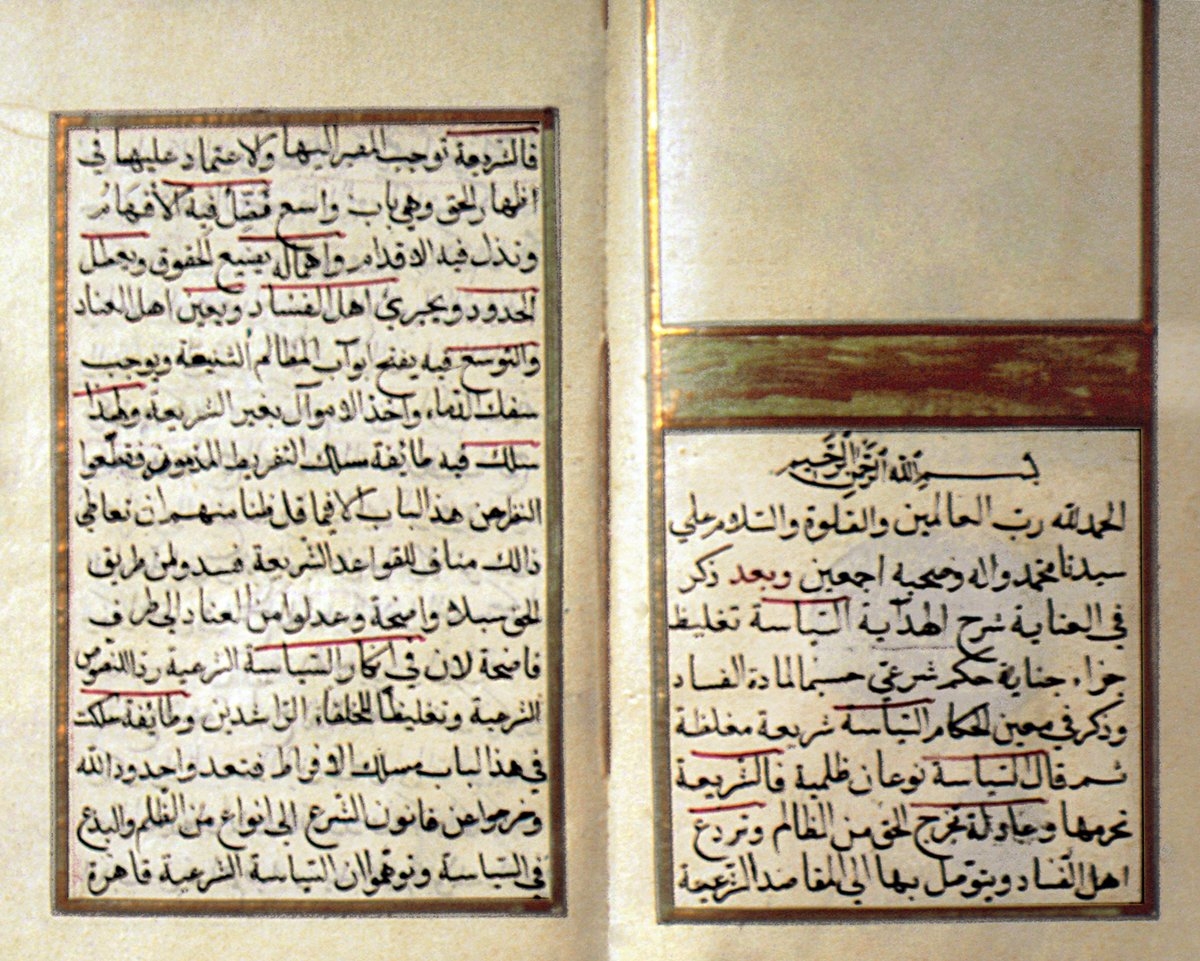 بسم الله الرحمن الرحيم
الحمد لله رب العالمين والصلوة والسلام علي
سيدنا محمد واله وصحبه اجمعين وبعد ذكر
في العناية شرح الهداية السياسة تغليظ
جزاء جناية حكم شرعي حسما لمادة الفساد
وذكر في معين الحكام السياسة شريعة مغلظة
ثم قال السياسة نوعان ظلمية فالشريعة
تحرمها وعادلة تخرج الحق من الظالم وتردع
اهل الفساد ويتوصل بها الي المقاصد الشرعية
فالشريعة توجب المصير اليها والاعتماد عليها في
اظهار الحق وهي باب واسع تضل فيه الافهام
وتزل فيه الاقدام واهماله يضيع الحقوق ويعطل
الحدود ويجبرئ اهل الفساد ويعين اهل العناد
والتوسع فيه يفتح ابواب المظالم الشنيعة ويوجب
سفك الدماء واخذ الاموال بغير الشريعة ولهذا
سلك فيه طائفة مسلك التفريط المذموم فقطعوا
النظر عن هذا الباب الا فيما قل ظنا منهم ان تعاطي
ذالك مناف للقواعد الشريعة فسدوا من طريق
الحق سبلا واضحة وعدلوا من العناد الي طرف
فاضحة لان في انكار السياسة الشرعية رد النصوص
الشرعية وتغليظا للخلفاء الراشدين وطائفة سلكت
في هذا الباب مسلك الافراط فتعدوا حدود الله
وخرجوا عن قانون الشرع الي انواع من الظلم والبدع
في السياسة وتوهموا ان السياسة الشرعية قاهرة